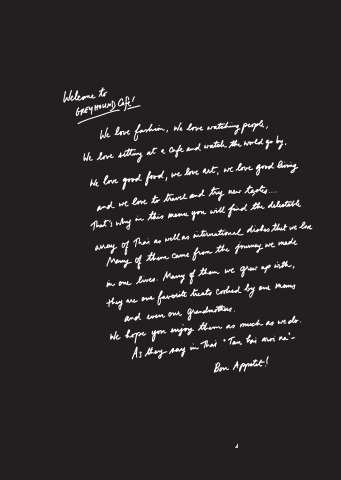 Welcome to
GREYHOUND Café!
We love fashion, We love watching people,
We love sitting at a Cafe and watch the world go by.
We love good food, we love art, we love good living
and we love to travel and try new tastes....
That's why in this menu you will find the delectable
array of Thai as well as international dishes that we love
Many of them came from the journey we made
in our lives. Many of them we grew up with,
they are our favorite treats cooked by our moms
and even our grandmothers.
We hope you enjoy them as much as we do.
As they say in Thai "Tan hai aroi na"-
Bon Appetit!